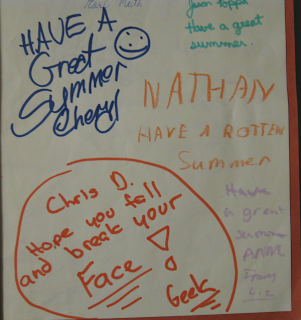 Have a great
summer.
HAVE A
Great
Summer
Cheryl
NATHAN
HAVE A ROTTEN
Summer
Chris D.
Hope you fall
and break your
Face!
Geek
Have
a great
summer
From
Liz